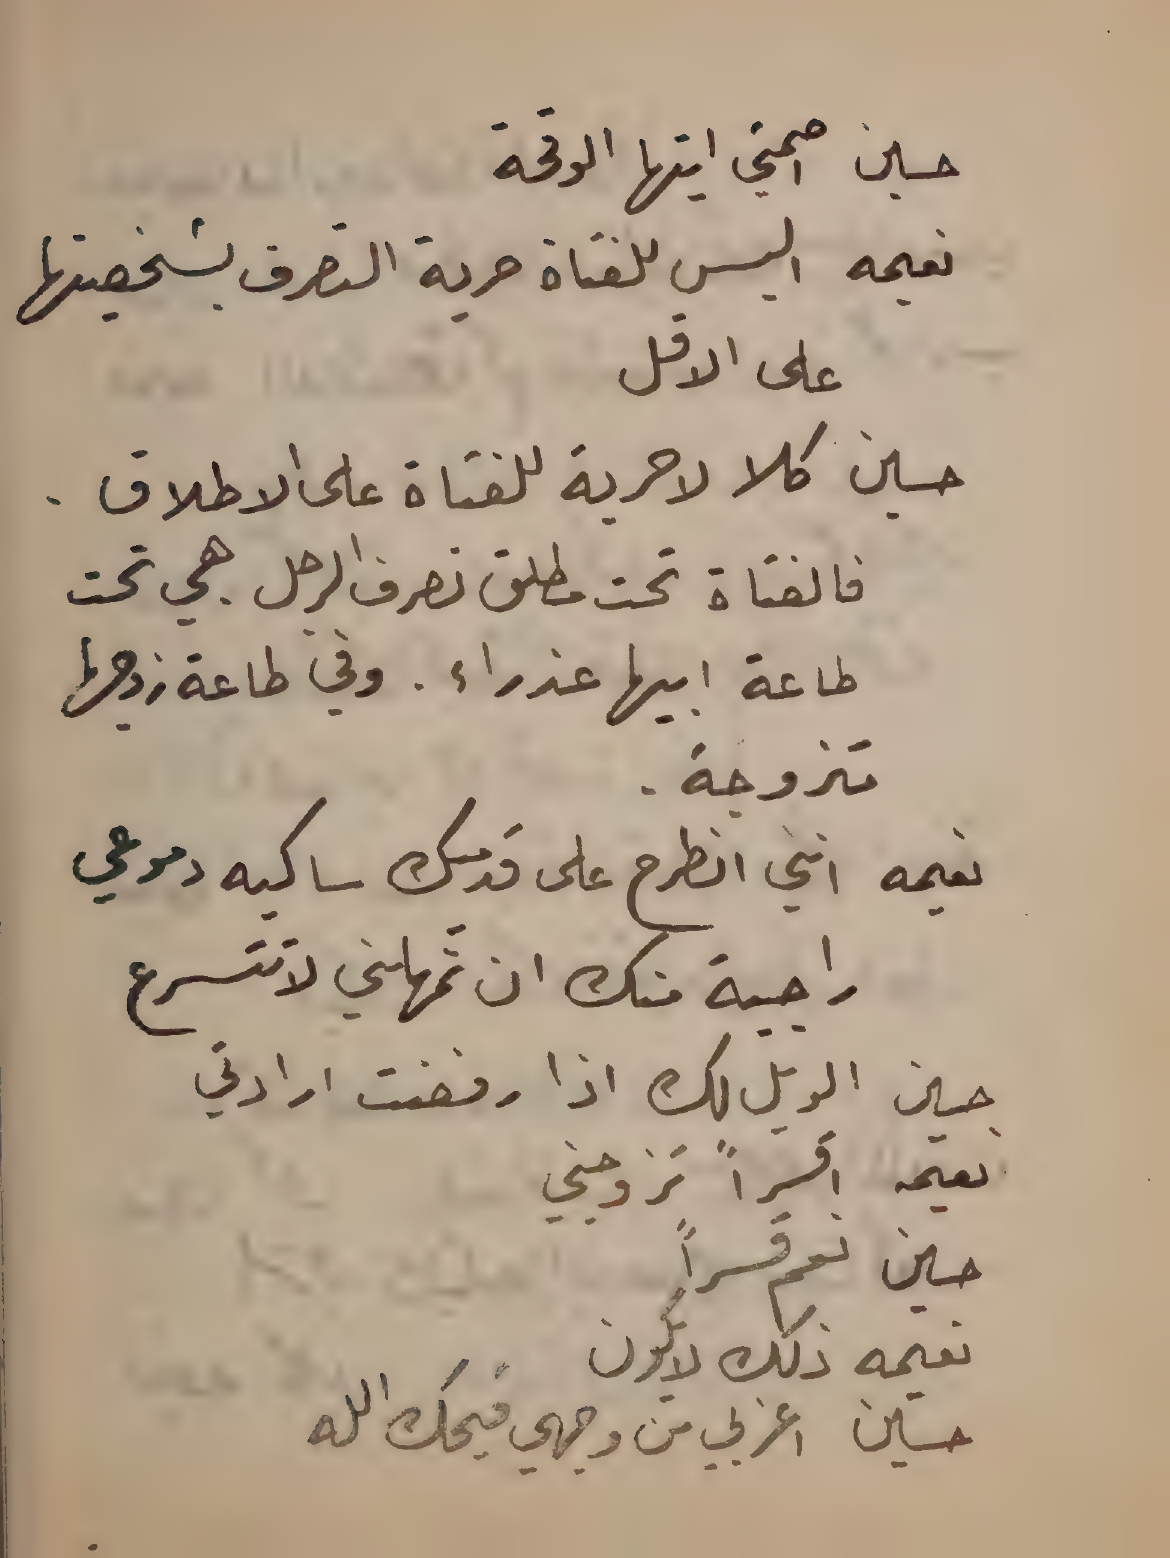 حسين اصمتي ايتها الوقحة
نعيمه اليس للفتاة حرية التصرف بشخصيتها
على الاقل
حسين كلا لا حرية للفتاة على الاطلاق .
فالفتاة تحت مطلق تصرف الرجل . هي تحت
طاعة ابيها عذراء . وفي طاعة زوجها
متزوجة .
نعيمه انني انطرح على قدميك ساكبه دموعي
راجية منك ان تمهلني لا تتسرع
حسين الويل لك اذا رفضت ارادتي
نعيمه اقسراً تزوجني
حسين نعم قسراً
نعيمه ذلك لا يكون
حسين اغربي من وجهي قبحك الله